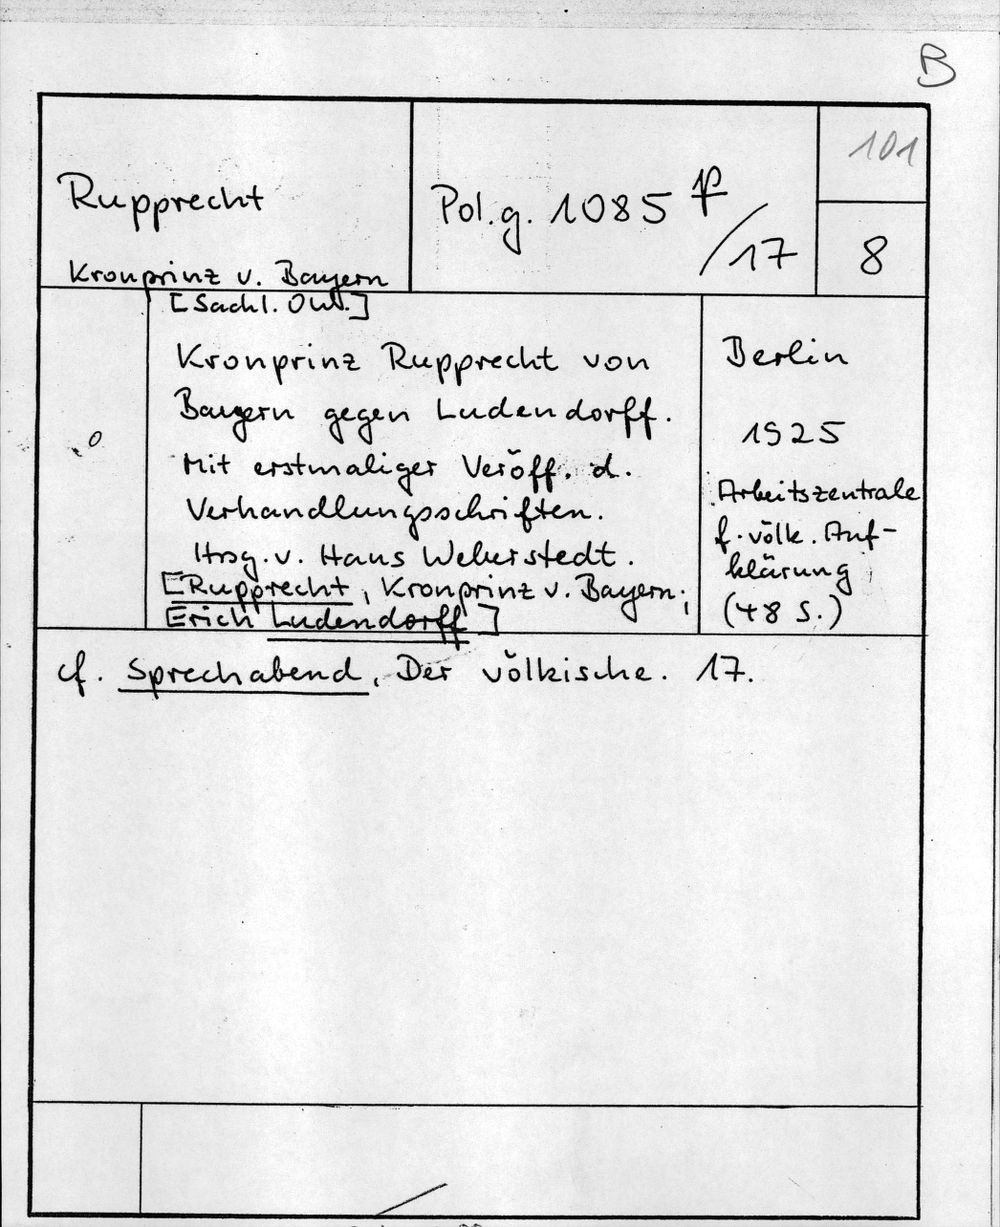 B
101
Rupprecht
Kronprinz v. Bayern
Pol.g. 1085 p
/17
8
[Sachl. Ow.]
Kronprinz Rupprecht von
Bayern gegen Ludendorff.
Mit erstmaliger Veröff. d.
Verhandlungsschriften.
Hrsg. v. Hans Weberstedt.
[Rupprecht, Kronprinz v. Bayern;
Erich Ludendorff]
Berlin
1925
Arbeitszentrale
f. völk. Auf-
klärung
(48 S.)
cf. Sprechabend, Der völkische. 17.